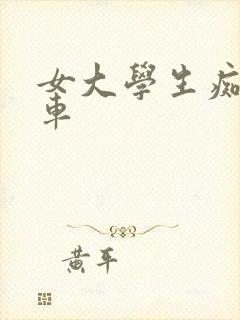 女大學生痴
車
黃平